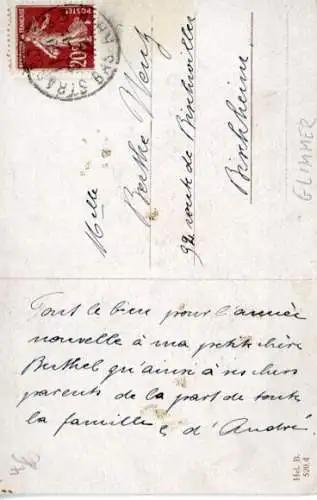 POSTES
20c
Melle
Berthe Wenz
92 route de Bischwiller
Bischheim
GLIMMER
Tout le bien pour l'année
nouvelle à ma petite chère
Berthel qu'ainsi à ses chers
parents de la part de toute
la famille & d'André.
Hel. B.
520,4